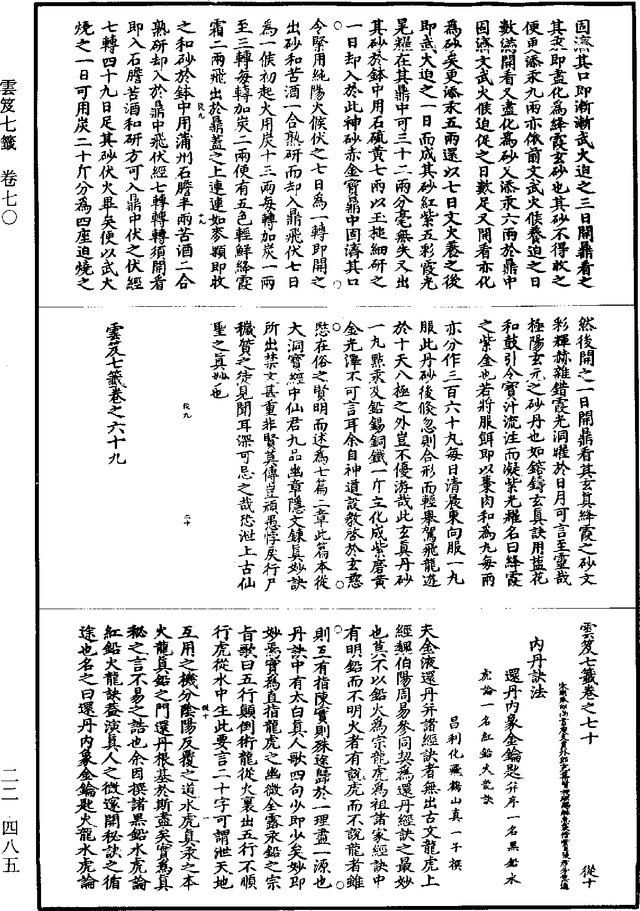 雲笈七籤 卷七〇
二二―四八五
因濟其口即漸漸武火迫之三日開鼎看之
其汞即盡化為絳霞玄砂也其砂不得收之
便更添汞九兩亦依前文武火候養迫之日
數滿開看又盡化為砂又添汞六兩於鼎中
固濟文武火候迫促之日數足又開看亦化
為砂矣更添汞五兩還以七日文火養之後
即武火迫之一日而成其砂紅紫五彩霞光
晃耀在其鼎中可三十二兩分毫無失又出
其砂於鉢中用石硫黃七兩以玉槌細研之
一日却入於此神砂赤金寶鼎中固濟其口
令堅用純陽火候伏之七日為一轉即開之
出砂和苦酒一合熟研而却入鼎飛伏七日
為一候初起火用炭十三兩每轉加炭一兩
至三轉每轉加炭二兩便有五色輕鮮絳霞
霜二兩飛出於鼎蓋之上連連如麥顆即收
之和砂於鉢中用蒲州石膽半兩苦酒二合
熟研却入於鼎中飛伏經七轉轉轉須開看
即入石膽苦酒和研方可入鼎中伏之伏經
七轉四十九日足其砂伏火畢矣便以武火
燒之一日可用炭二十斤分為四座迫燒之
然後開之一日開鼎看其玄真絳霞之砂文
彩輝赫雜錯霞光洞曜於日月可言至靈哉
極陽玄元之砂丹也如鎔鑄玄真訣用藍花
和鼓引令寶汁流注而凝紫光耀名曰絳霞
之紫金也若將服餌即以棗肉和為丸每兩
亦分作三百六十丸每日清晨東向服一丸
服此丹砂後倏忽則合形而輕舉駕飛龍遊
於十天八極之外豈不優游哉此玄真丹砂
一丸點汞及鉛錫銅鐵一斤立化成紫磨黃
金光澤不可言耳余自神道設教啓於玄慈
愍在俗之賢明而述為七篇二章此篇本從
大洞寶經中仙君九品幽章隱文鍊真妙訣
所出禁文甚重非賢莫傳豈頑愚悖戾行尸
穢質之徒見聞耳深可忌之哉恐泄上古仙
聖之真妙也
雲笈七籤卷之六十九
雲笈七籤卷之七十 從十
內丹訣法
還丹內象金鑰匙 并序 一名黑鉛水
虎論 一名紅鉛火龍訣
昌利化飛鶴山真一子撰
夫金液還丹并諸經訣者無出古文龍虎上
經魏伯陽周易參同契為還丹經訣之最妙
也莫不以鉛火為宗龍虎為祖諸家經訣中
有明鉛而不明火者有說虎而不說龍者雖
則互有指陳實則殊途歸於一理盡一源也
丹訣中有太白真人歌四句少即少矣妙即
妙焉實為直指龍虎之幽微全露汞鉛之宗
旨歌曰五行顛倒術龍從火裏出五行不順
行虎從水中生此要言二十字可謂泄天地
互用之機分陰陽反覆之道水虎真汞之本
火龍真鉛之門還丹根基於斯盡矣實為真
秘之言不易之誥也余因撰諸黑鉛水虎論
紅鉛火龍訣益演真人之微邃開秘訣之循
途也名之曰還丹內象金鑰匙火龍水虎論